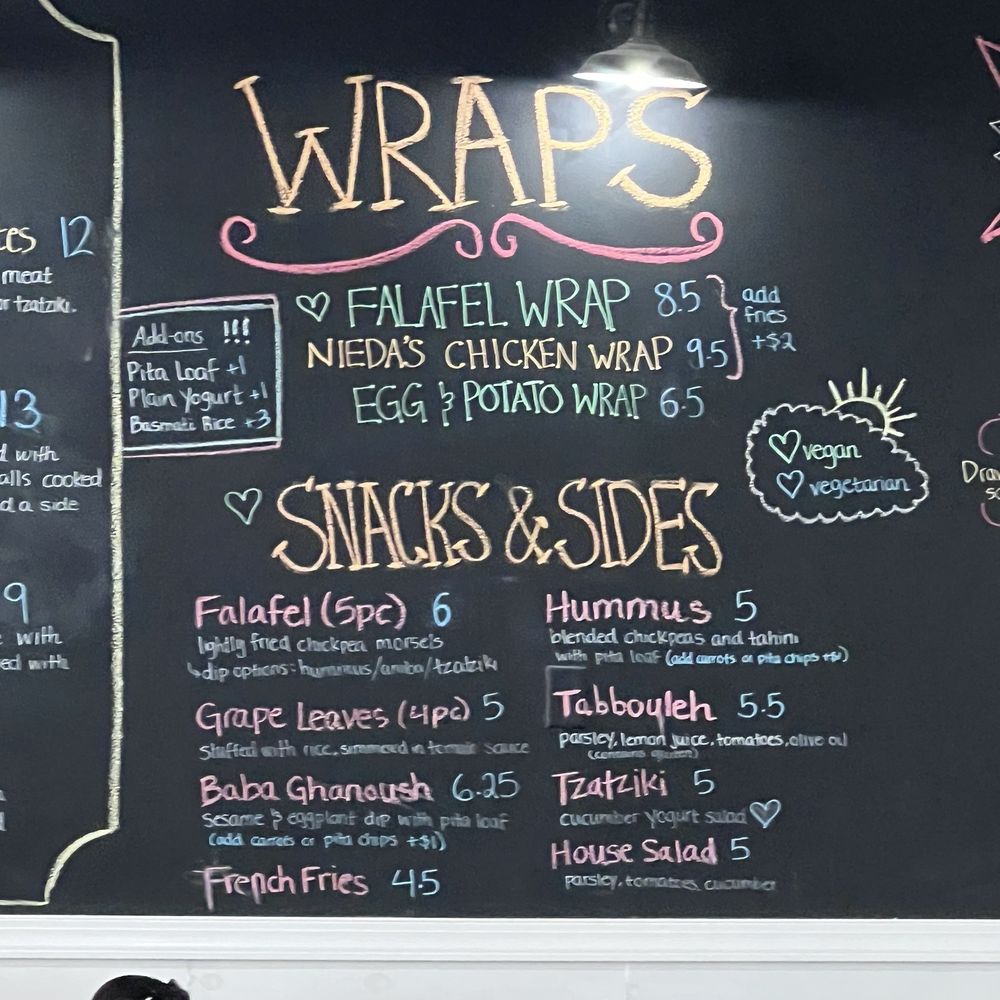 WRAPS
FALAFEL WRAP 8.5
NIEDA'S CHICKEN WRAP 9.5
EGG & POTATO WRAP 6.5
add
fries
+$2
Add-ons !!!
Pita Loaf +1
Plain Yogurt +1
Basmati Rice +3
vegan
vegetarian
SNACKS & SIDES
Falafel (5pc) 6
lightly fried chickpea morsels
dip options: hummus/amba/tzatziki
Grape Leaves (4pc) 5
stuffed with rice, simmered in tomato sauce
Baba Ghanoush 6.25
sesame & eggplant dip with pita loaf
(add carrots or pita chips +$1)
French Fries 4.5
Hummus 5
blended chickpeas and tahini
with pita loaf (add carrots or pita chips +$1)
Tabbouleh 5.5
parsley, lemon juice, tomatoes, olive oil
(contains gluten)
Tzatziki 5
cucumber yogurt salad
House Salad 5
parsley, tomatoes, cucumber
12
meat
or tzatziki.
13
with
cooked
a side
9
with
with